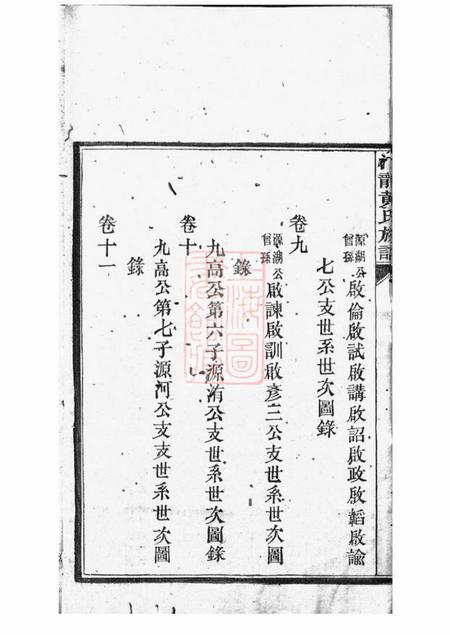 黃氏族譜
源湖公曾孫啟倫啟試啟講啟詔啟政啟韜啟諭
七公支世系世次圖錄
卷九
源湖公曾孫啟諫啟訓啟彥三公支世系世次圖
錄
九高公第六子源洧公支世系世次圖錄
卷十
九高公第七子源河公支世系世次圖
錄
卷十一